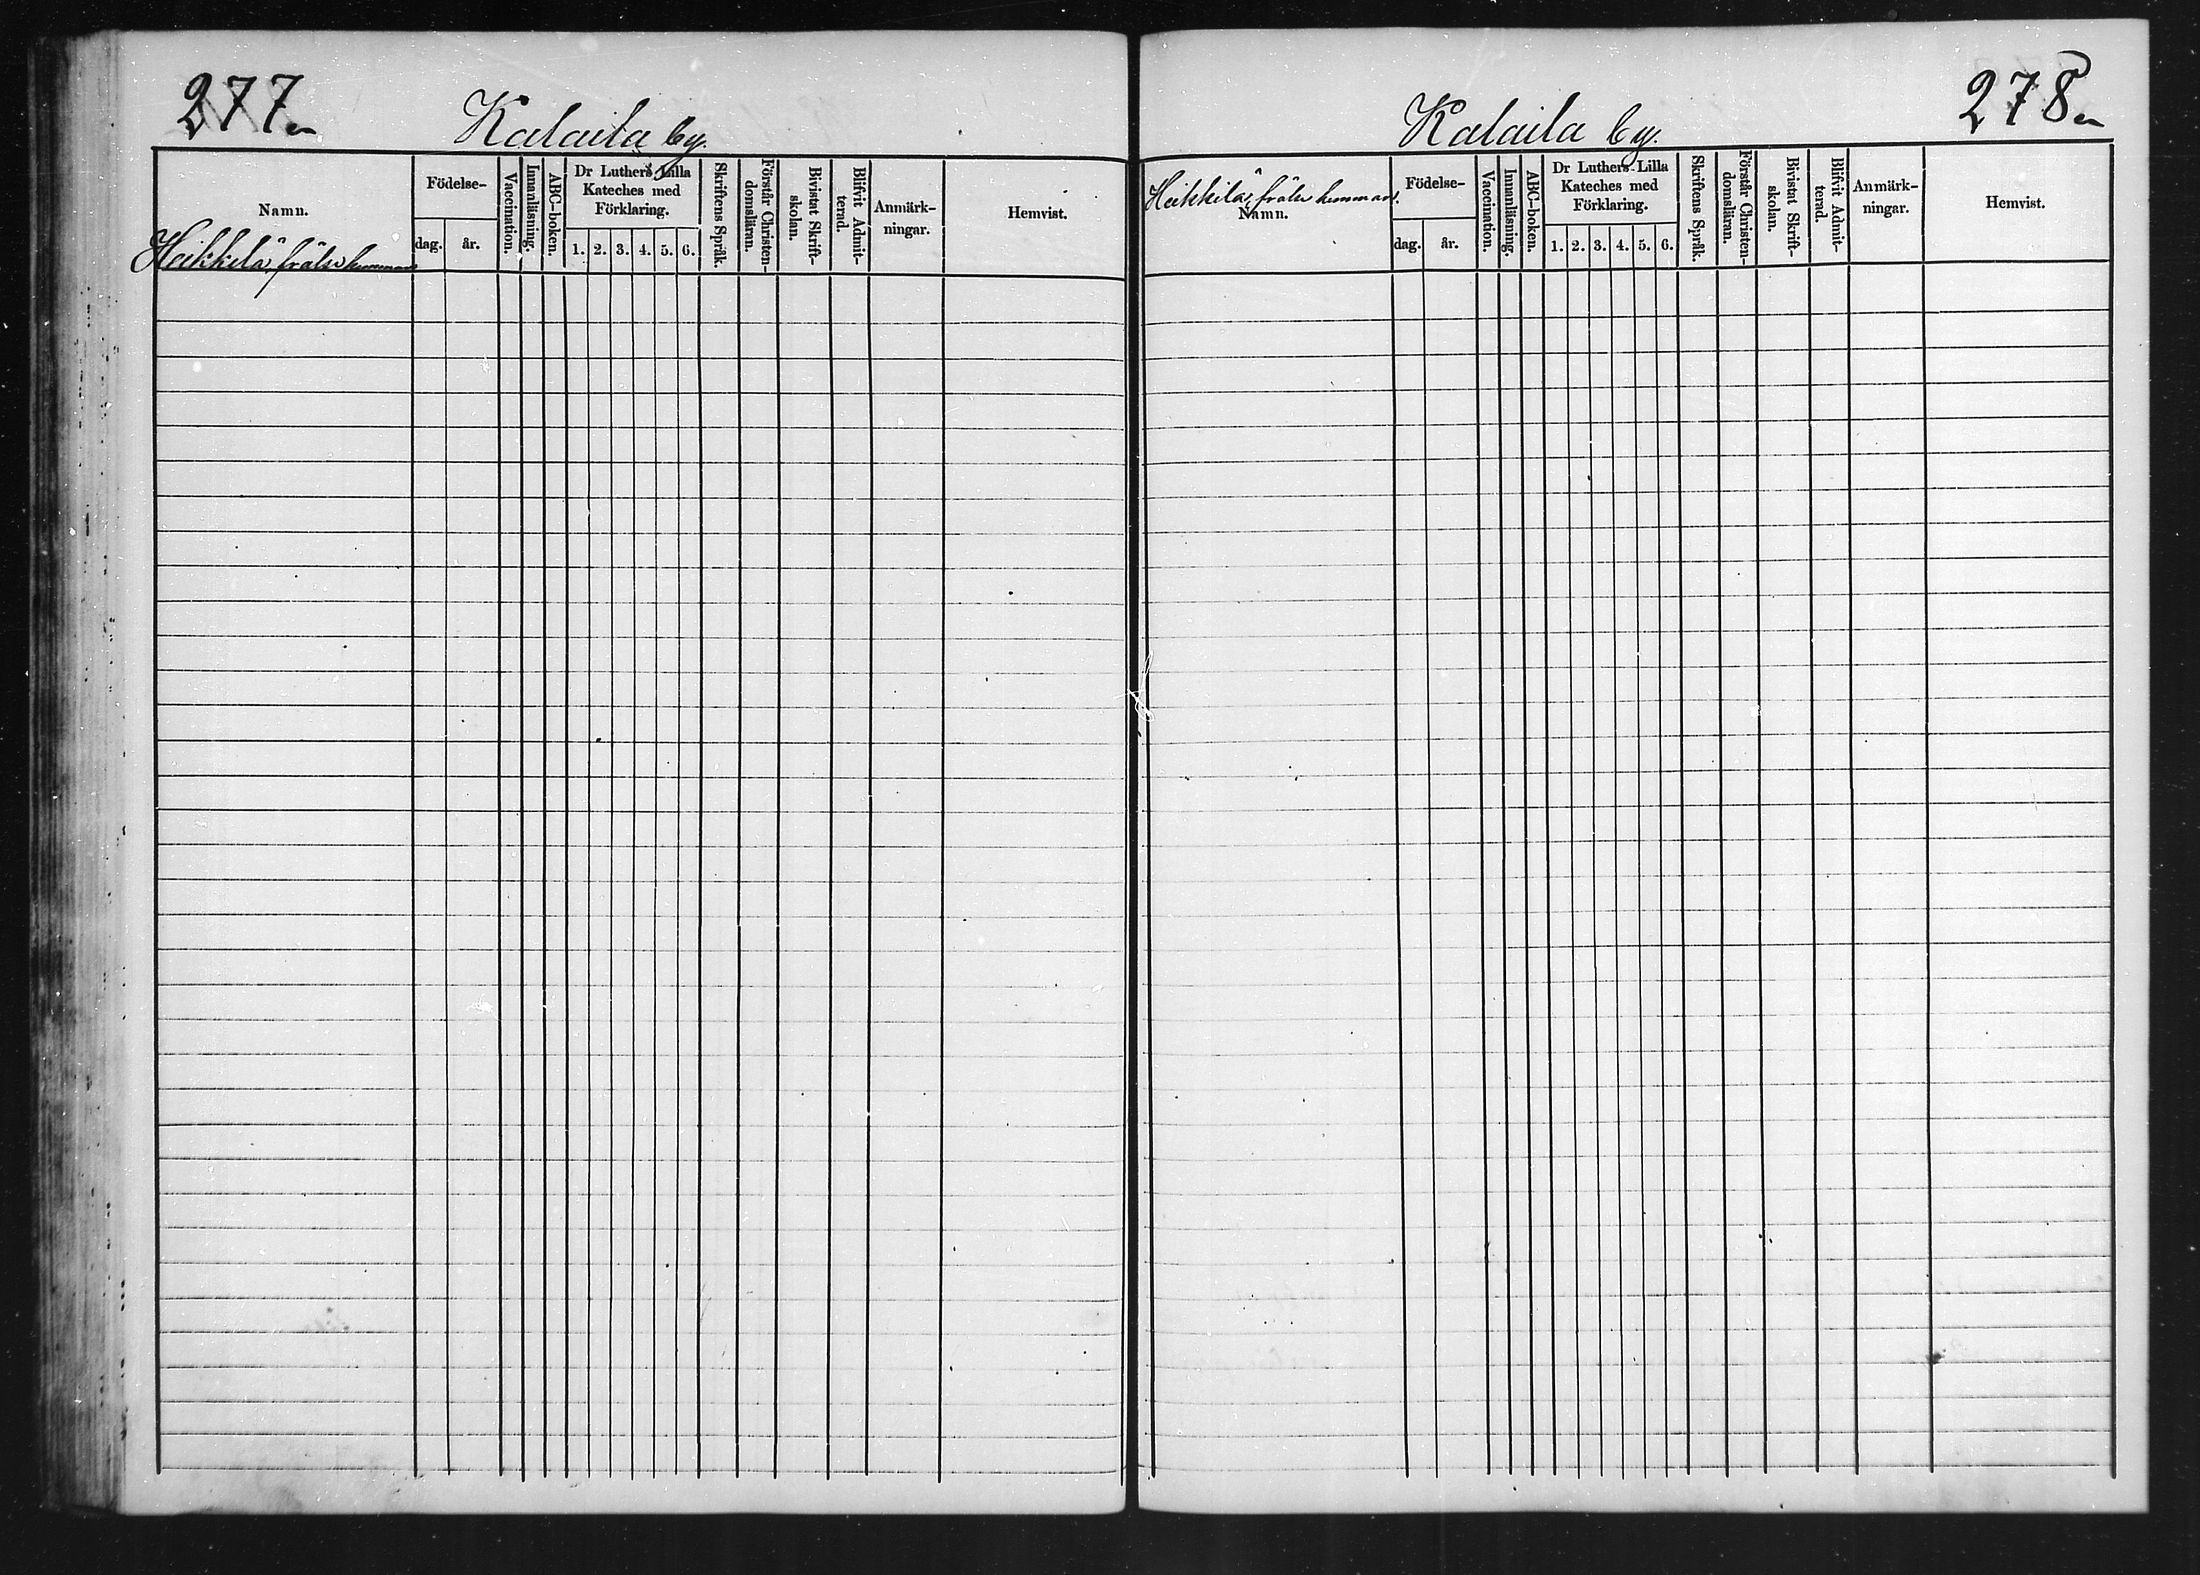 277
Kalaila by.
Namn.
Heikkilä frälse hemman
Födelse-
dag. år.
Vaccination.
Innanläsning.
ABC-boken.
Dr Luthers Lilla
Kateches med
Förklaring.
1. 2. 3. 4. 5. 6.
Skriftens Språk.
Förstår Christen-
domsläran.
Bivistat Skrift-
skolan.
Blifvit Admit-
terad.
Anmärk-
ningar.
Hemvist.
278
Kalaila by.
Heikkilä frälse hemman.
Namn.
Födelse-
dag. år.
Vaccination.
Innanläsning.
ABC-boken.
Dr Luthers Lilla
Kateches med
Förklaring.
1. 2. 3. 4. 5. 6.
Skriftens Språk.
Förstår Christen-
domsläran.
Bivistat Skrift-
skolan.
Blifvit Admit-
terad.
Anmärk-
ningar.
Hemvist.